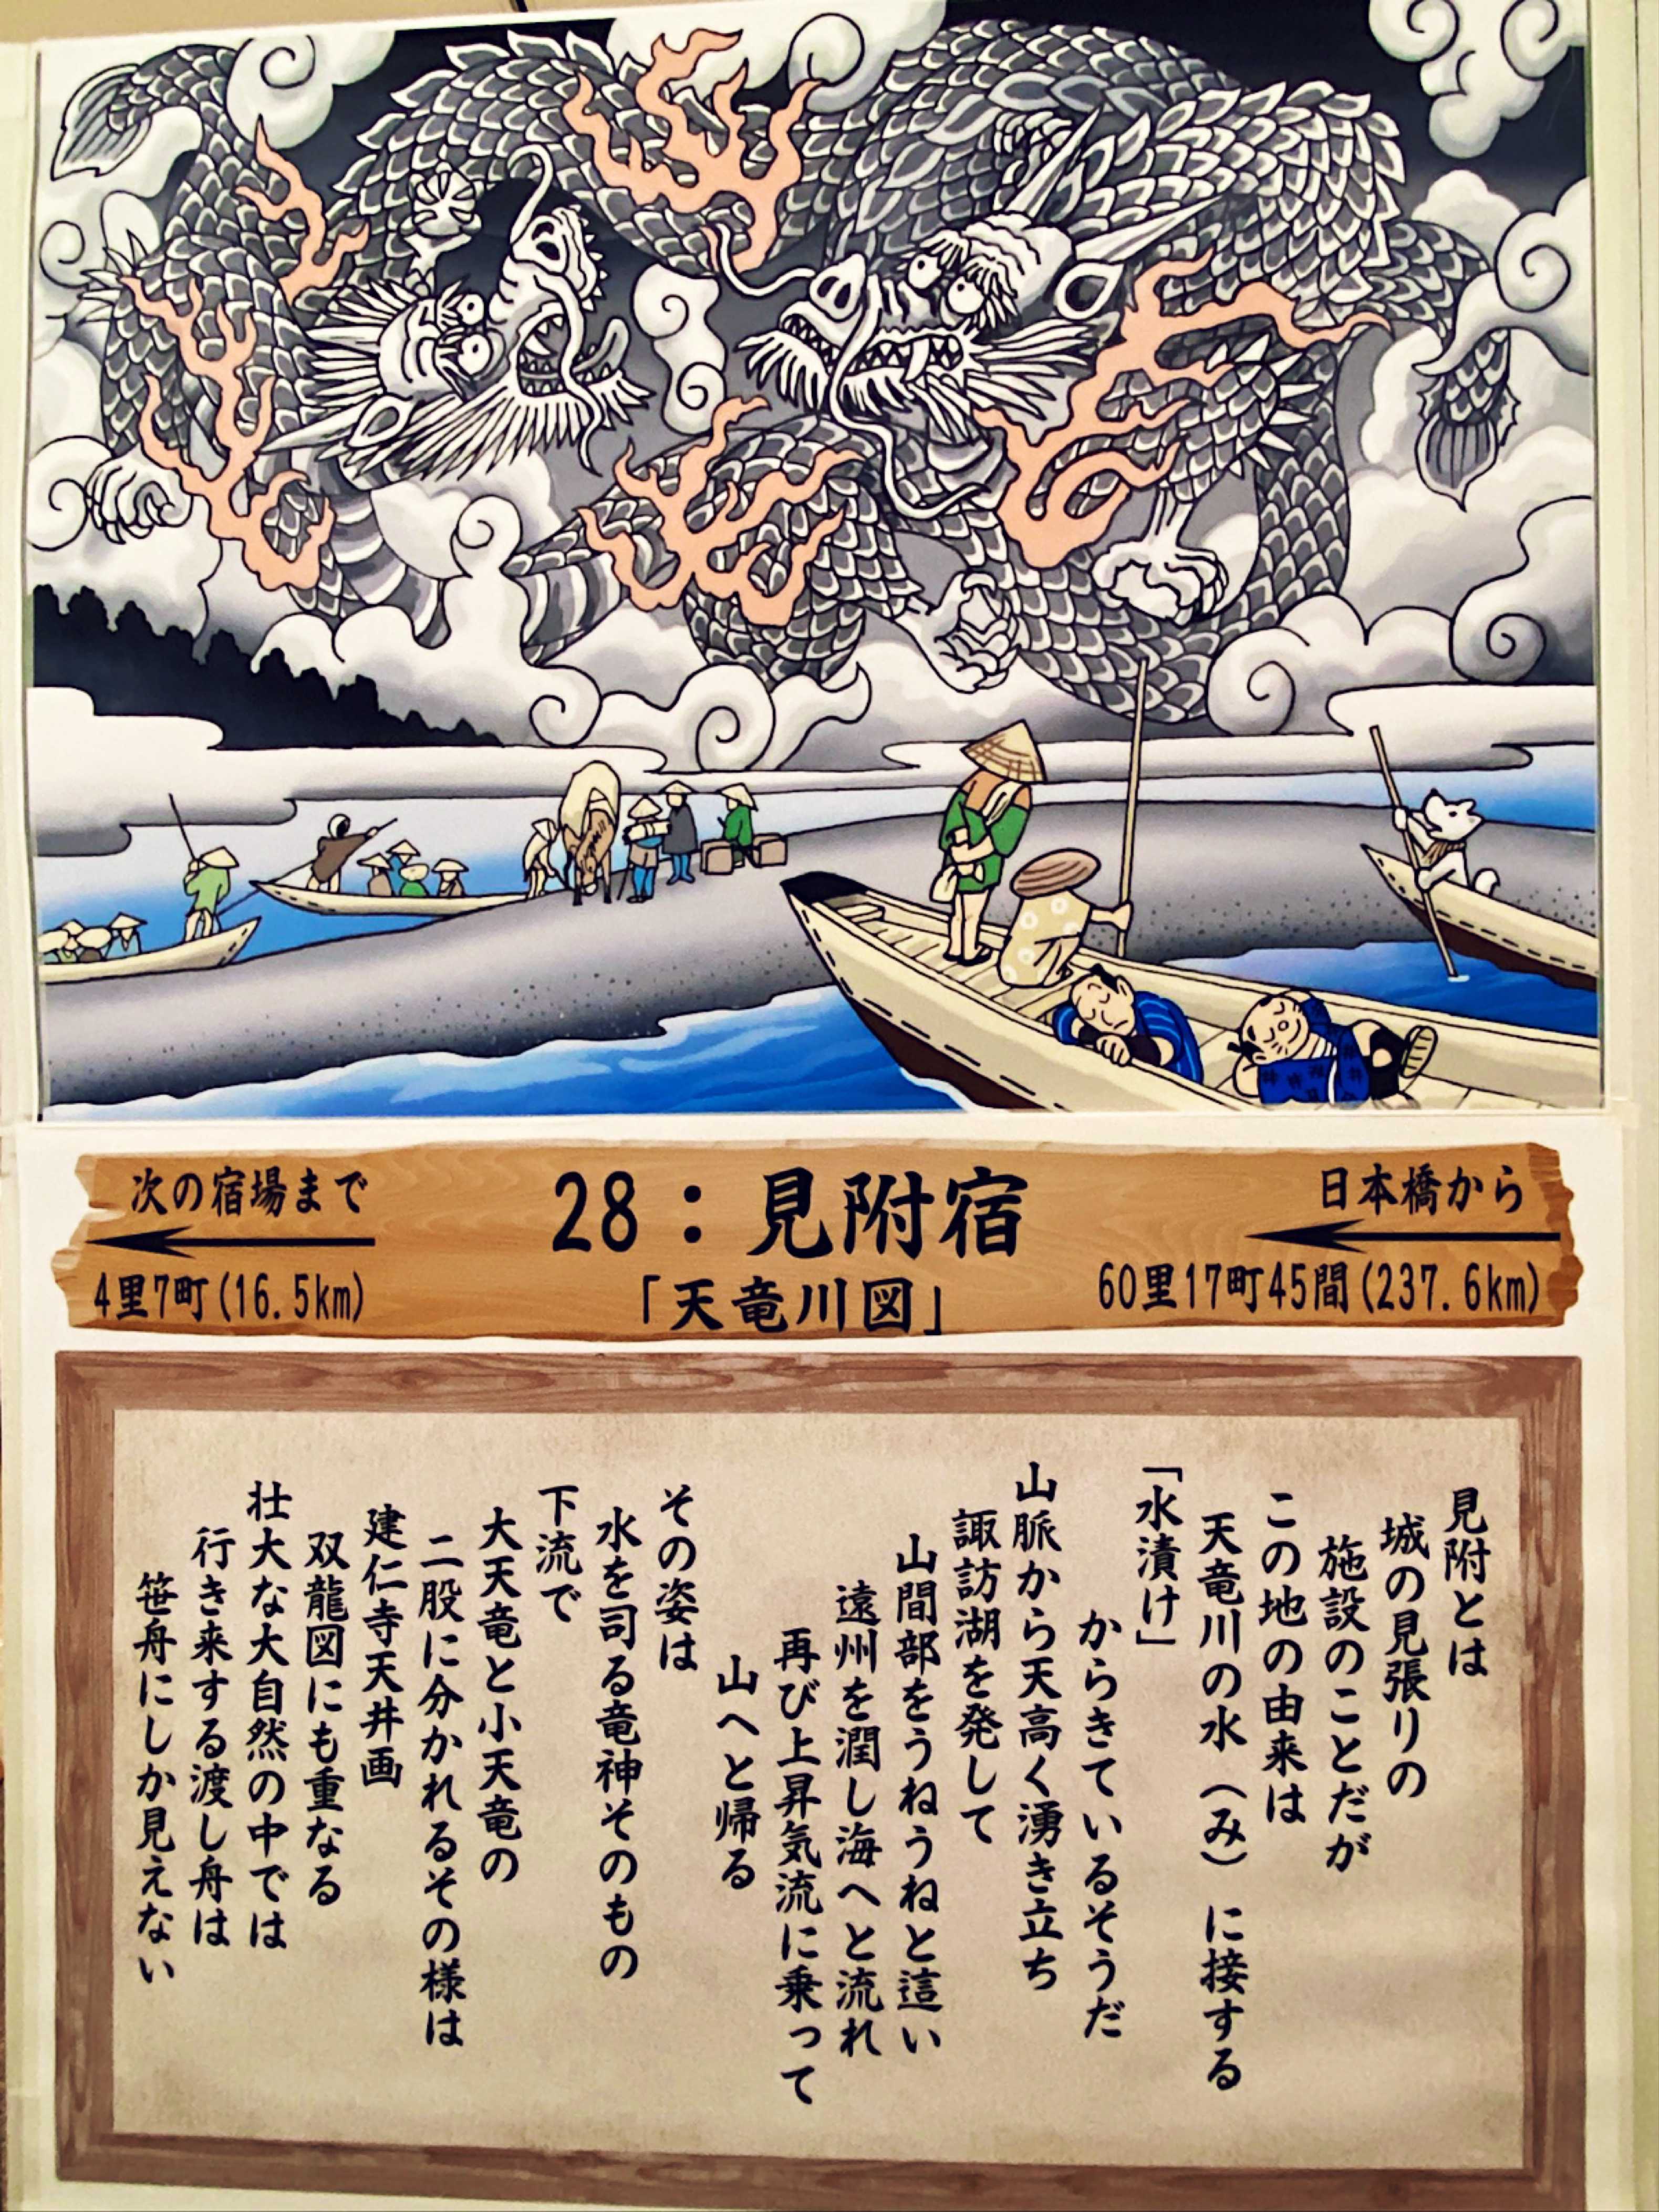 次の宿場まで
4里7町(16.5km)
28：見附宿
「天竜川図」
日本橋から
60里17町45間(237.6km)
見附とは
城の見張りの
施設のことだが
この地の由来は
天竜川の水（み）に接する
「水漬け」
からきているそうだ
山脈から天高く湧き立ち
諏訪湖を発して
山間部をうねうねと這い
遠州を潤し海へと流れ
再び上昇気流に乗って
山へと帰る
その姿は
水を司る竜神そのもの
下流で
大天竜と小天竜の
二股に分かれるその様は
建仁寺天井画
双龍図にも重なる
壮大な大自然の中では
行き来する渡し舟は
笹舟にしか見えない